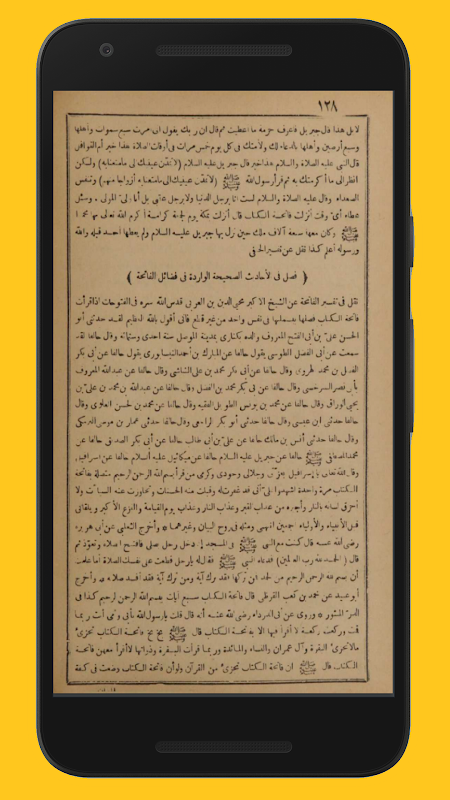 ١٢٨
لا بل هذا قال جبريل فاعرف حرمة ما اعطيت ثم قال ان ربك يقول انى سبع سموات واهلها
وسبع أرضين وأهلها بالدعاء لك ولأمتك فى كل يوم خمس مرات فى أوقات الصلاة هذا خير أم القوافل
قال النبى عليه الصلاة والسلام هذا خير قال جبريل عليه السلام (لا تمدّن عينيك الى ما متعنابه) ولكن
انظر الى ما أكرمتك به ثم قرأ رسول الله ﷺ (لا تمدّن عينيك الى ما متعنا به أزواجا منهم)
وقال عليه الصلاة والسلام لست انا برجل الدنيا ولا برجل عقبى بل أنا رجل المولى . وسئل
عطاء أى وقت أنزلت فاتحة الكتاب قال أنزلت بمكة يوم كرامة أكرم الله تعالى بها محمدا
ﷺ وكان معها سبعة آلاف ملك حين نزل بها جبريل عليه السلام ولم يعطها احد قبله والله
ورسوله أعلم كذا نقل عن تفسير الحنفى
﴿ فصل فى الأحاديث الصحيحة الواردة فى فضائل الفاتحة ﴾
نقل فى تفسير الفاتحة عن الشيخ الاكبر محيى الدين بن العربى قدس الله سره فى الفتوحات اذا قرأت
فاتحة الكتاب فصلها ببسملتها فى نفس واحد من غير قطع فانى أقول بالله العظيم لقد حدثنى أبو
الحسن على بن أبى الفتح المعروف والده بمدينة الموصل سنة احدى وستمائة وقال حالفا لقد
سمعت عن أبى الفضل الطوسى يقول حالفا عن المبارك بن أحمد النيسابورى يقول حالفا عن أبى بكر
الفضل بن محمد وقال حالفا عن أبى بكر محمد بن على الشاشى وقال حالفا عن عبدالله المعروف
بأبى نصر السرخسى وقال حالفا عن أبى بكر محمد بن الفضل وقال حالفا عن عبدالله بن محمد بن على بن
يحيى الوراق وقال حالفا عن محمد بن يونس الطويل الفقيه وقال حالفا عن محمد بن الحسن العلوى وقال
حالفا حدثنى موسى بن عيسى وقال حالفا حدثنى أبو بكر الراجعى وقال حالفا حدثنى عمار بن موسى البرمكى
وقال حالفا حدثنى أنس بن مالك حالفا عن على بن أبى طالب حالفا عن أبى بكر الصديق حالفا عن
محمد المصطفى ﷺ حالفا عن جبريل عليه السلام حالفا عن ميكائيل عليه السلام حالفا عن اسرافيل
وقال الله تعالى يا اسرافيل بعزتى وجلالى وجودى وكرمى من قرأ بسم الله الرحمن الرحيم متصلة بفاتحة
الكتاب مرة واحدة اشهدوا انى قد غفرت له وقبلت منه الحسنات وتجاوزت عنه السيئات ولا
أحرق لسانه بالنار وأجيره من عذاب القبر وعذاب النار وعذاب يوم القيامة والفزع الأكبر ويلقانى
قبل الأنبياء والأولياء أجمعين انتهى ومثله فى روح البيان وغيرهما * وأخرج الثعلبى عن أبى هريرة
رضى الله عنه قال كنت مع النبى ﷺ فى المسجد إذ دخل رجل يصلى فافتتح الصلاة وتعوّذ ثم
قال (الحمد لله رب العالمين) فسمعه النبى ﷺ فقال له يا رجل قطعت على نفسك الصلاة أما علمت
أن بسم الله الرحمن الرحيم من الحمد لله من تركها فقد ترك آية ومن ترك آية فقد أفسد صلاته وأخرج
أبو عبيد عن محمد بن كعب القرظى قال فاتحة الكتاب سبع آيات ببسم الله الرحمن الرحيم كذا فى
الدرّ المنثور * وروى عن أبى الدرداء رضى الله عنه أنه قال قلت يا رسول الله بأبى وأمى أنت ربما
قمت وركعت ركعة لا أقرأ فيها الا بفاتحة الكتاب قال ﷺ بخ بخ فاتحة الكتاب تجزئ
مالا تجزئ البقرة وآل عمران والنساء والمائدة وربما قرأت البقرة وذواتها لا أقرأ معهن فاتحة
الكتاب قال ﷺ ان فاتحة الكتاب تجزئ من القرآن ولو أن فاتحة الكتاب وضعت فى كفة